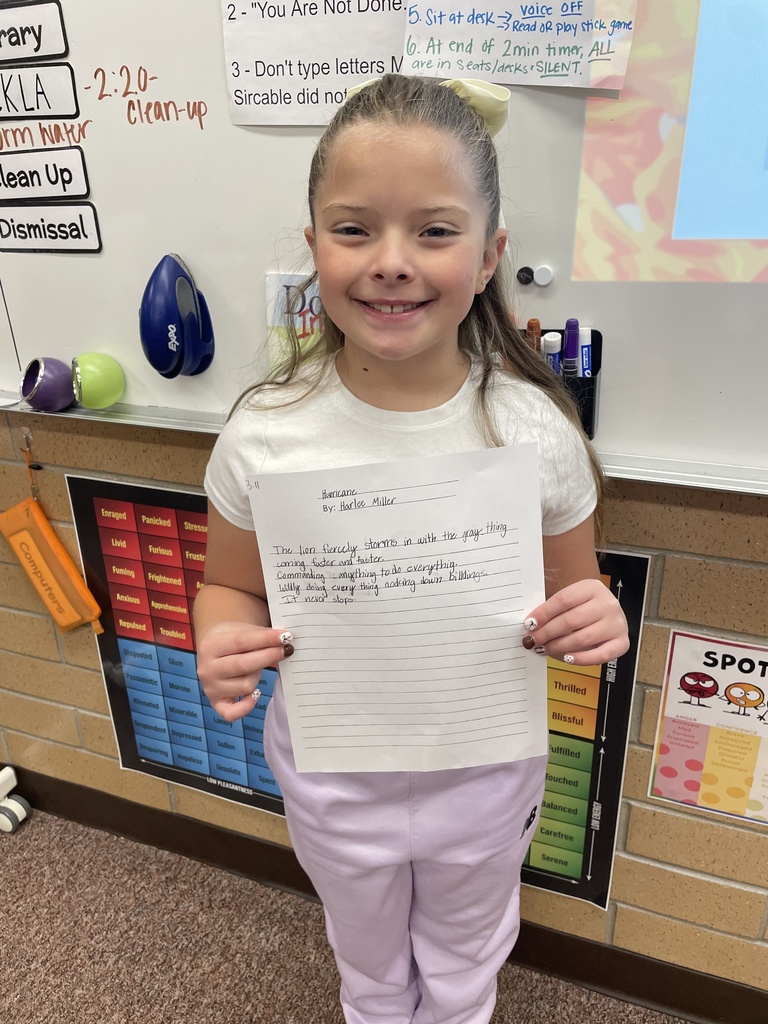 2 - "You Are Not Done.
3 - Don't type letters M
Sircable did not
5. Sit at desk → voice OFF
→ Read OR play stick game
6. At end of 2min timer, ALL
are in seats/desks + SILENT.
rary
CKLA
-2:20-
clean-up
orm water
lean Up
Dismissal
EXPO
Do
Hurricane
By: Harlee Miller
The lion fiercely storms in with the gray thing
coming faster and faster.
Commanding anything to do everything.
Wildly doing every thing nocking down buildings.
It never stops.
Computers
Enraged Panicked Stresse
Livid Furious Frustr
Fuming Frightened
Anxious Apprehensive
Repulsed Troubled
Disgusted Glum
Pessimistic Morose
Alienated Miserable
Despondent Depressed Sullen Exha
Despairing Hopeless Desolate Spent
LOW PLEASANTNESS
Thrilled
Blissful
Fulfilled
Touched
Balanced
Carefree
Serene
LOW ENERGY
SPOT
ANGER
CONFIDENCE